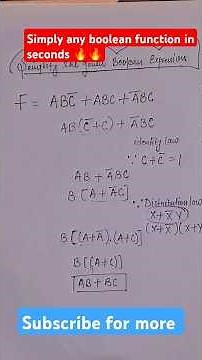 Simply any boolean function in
seconds 🔥🔥
Simplify the given Boolean Expressions
F = ABC̅ + ABC + A̅BC
AB(C̅+C) + A̅BC
identity law
∵ C+C̅ = 1
AB + A̅BC
B[A + A̅C]
∵ Distribution law
X+X̅Y
(X+X̅)(X+Y)
B[(A+A̅).(A+C)]
B[(A+C)]
AB + BC
Subscribe for more